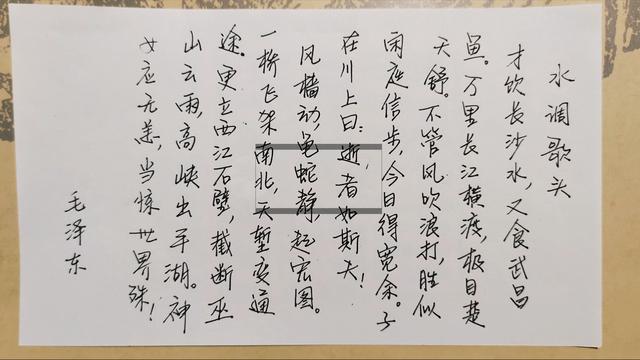 水调歌头
才饮长沙水，又食武昌
鱼。万里长江横渡，极目楚
天舒。不管风吹浪打，胜似
闲庭信步，今日得宽余。子
在川上曰：逝者如斯夫！
风樯动，龟蛇静，起宏图。
一桥飞架南北，天堑变通
途。更立西江石壁，截断巫
山云雨，高峡出平湖。神
女应无恙，当惊世界殊！
毛泽东